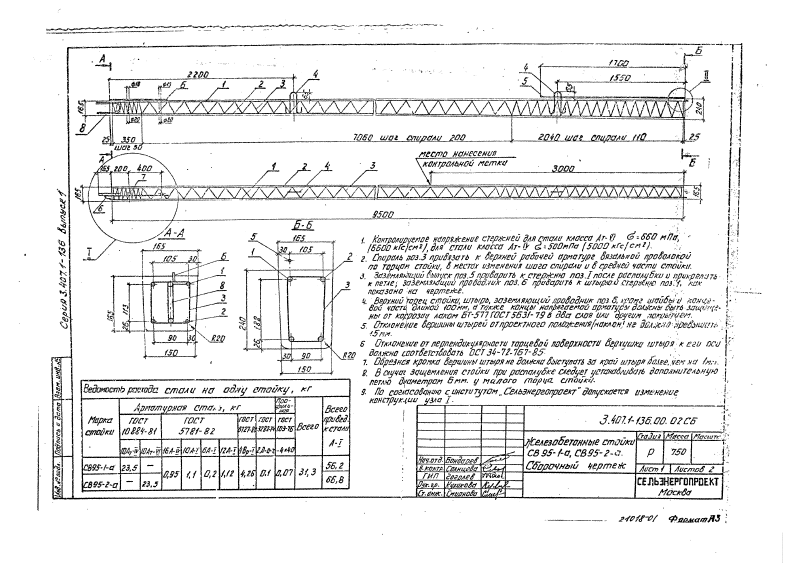 Серия 3.407.1-136 Выпуск 1
А
Б
2200
4
1700
1550
6
1
2
3
4
5
II
165
240
8
25
350
шаг 50
7060 шаг спирали 200
2040 шаг спирали 110
25
А
Б
место нанесения
контрольной метки
3000
165
200
400
7
1
2
4
3
165
6
9500
I
А-А
165
105
30
6
1
8
3
2
165
26
113
90
30
R20
150
Б-Б
165
30
105
5
1
2
3
240
26
188
30
90
30
R20
150
1. Контролируемое напряжение стержней для стали класса Ат-VI Ϭ=660 мПа,
(6600 кгс/см²), для стали класса Ат-V Ϭ=500мПа (5000 кгс/см²).
2. Спираль поз.3 привязать к верхней рабочей арматуре вязальной проволокой
по торцам стойки, в местах изменения шага спирали и в средней части стойки.
3. Заземляющий выпуск поз.5 приварить к стержню поз.1 после распалубки и прикрепить
к петле; заземляющий проводник поз.6 приварить к штырю и стержню поз.1, как
показано на чертеже.
4. Верхний торец стойки, штырь, заземляющий проводник поз.6, кроме шайбы и конце-
вой части длиной 100мм, а также концы напрягаемой арматуры должны быть защище-
ны от коррозии лаком БТ-577 ГОСТ 5631-79 в два слоя или другим покрытием.
5. Отклонение вершины штырей от проектного положения (наклон) не должно превышать
15мм.
6. Отклонение от перпендикулярности торцевой поверхности верхушки штыря к его оси
должна соответствовать ОСТ 34-72-767-85
7. Обрезная кромка вершины штыря не должна выступать за край штыря более, чем на 1мм.
8. В случае защемления стойки при распалубке следует устанавливать дополнительную
петлю диаметром 6мм у малого торца стойки.
9. По согласованию с институтом „Сельэнергопроект" допускается изменение
конструкции узла I.
Ведомость расхода стали на одну стойку, кг
Марка стойки
Арматурная сталь, кг
Всего
Всего привед. к стали А-I
ГОСТ 10884-81
ГОСТ 5781-82
СВ95-1-а 23,5 — 56,2
0,95 1,1 0,2 1,12 4,26 0.1 0,07 31,3
СВ95-2-а — 23,5 66,8
3.407.1-136.00.02СБ
Железобетонные стойки
СВ 95-1-а, СВ 95-2-а.
Сборочный чертеж
Стадия Масса Масштаб
Р 750
Лист 1 Листов 2
СЕЛЬЭНЕРГОПРОЕКТ
Москва
Нач.отд. Бондарев
Н.контр. Солнцева
ГИП
Рук.гр. Куликова
Ст.инж. Смирнова
Инв.№подл. Подпись и дата Взам.инв.№
21018-01 Формат А3